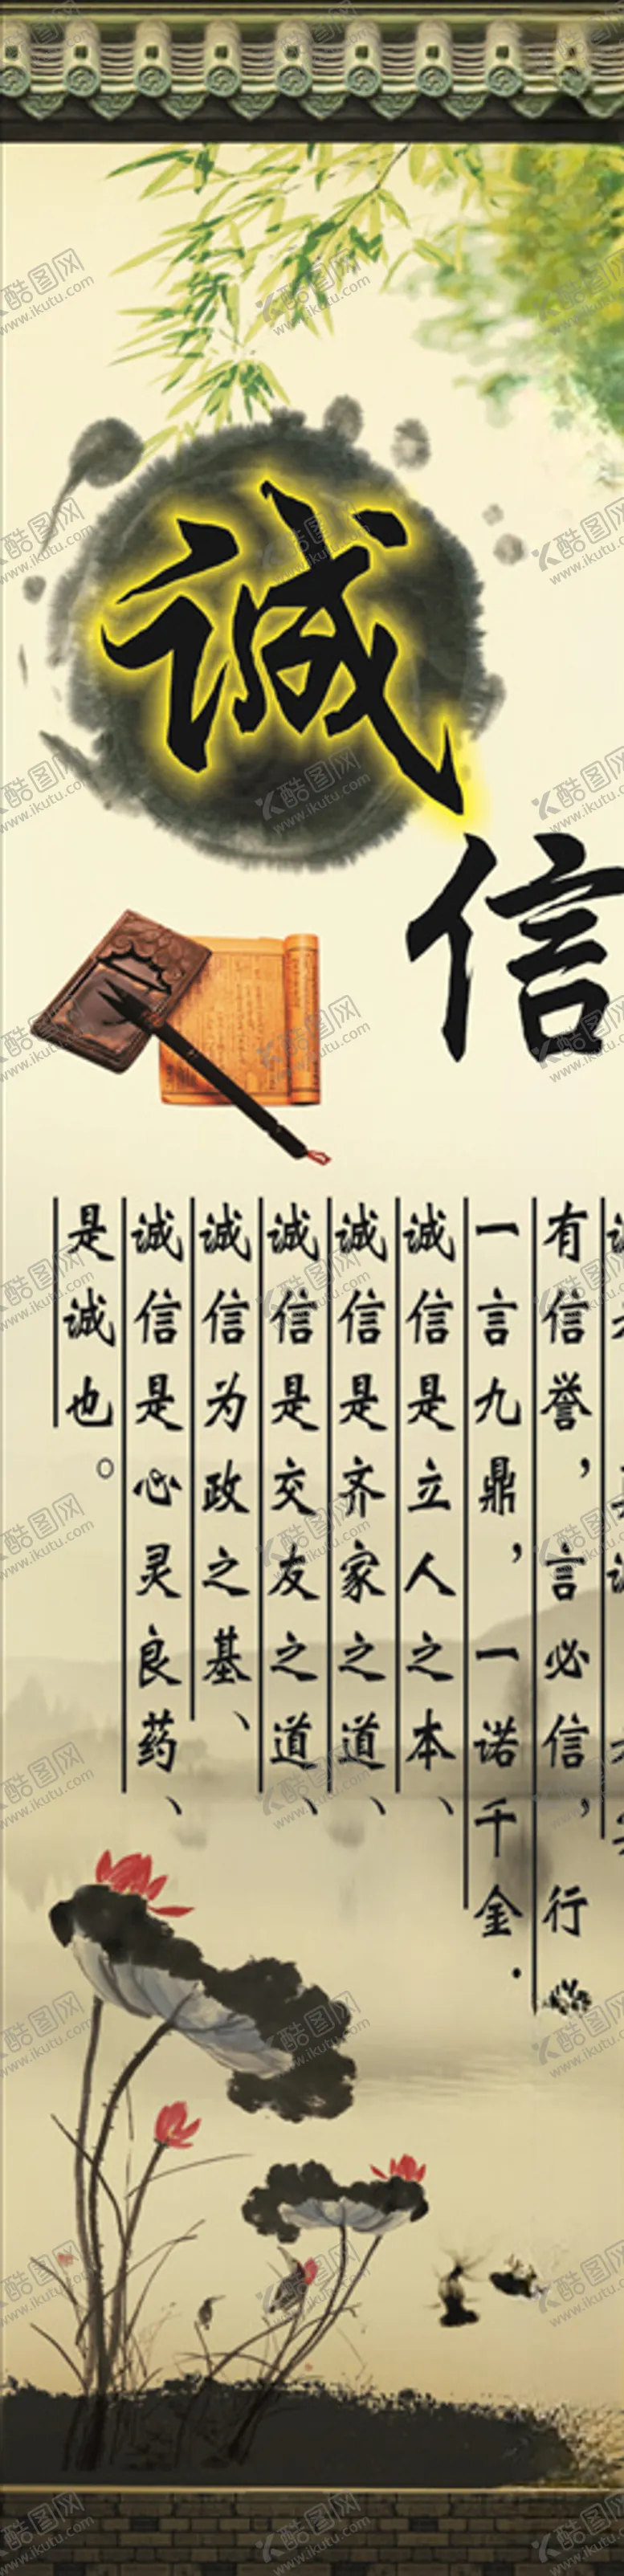 诚
信
有信誉，言必信，行
一言九鼎，一诺千金．
诚信是立人之本、
诚信是齐家之道、
诚信是交友之道、
诚信为政之基、
诚信是心灵良药、
是诚也。
酷图网
www.ikutu.com